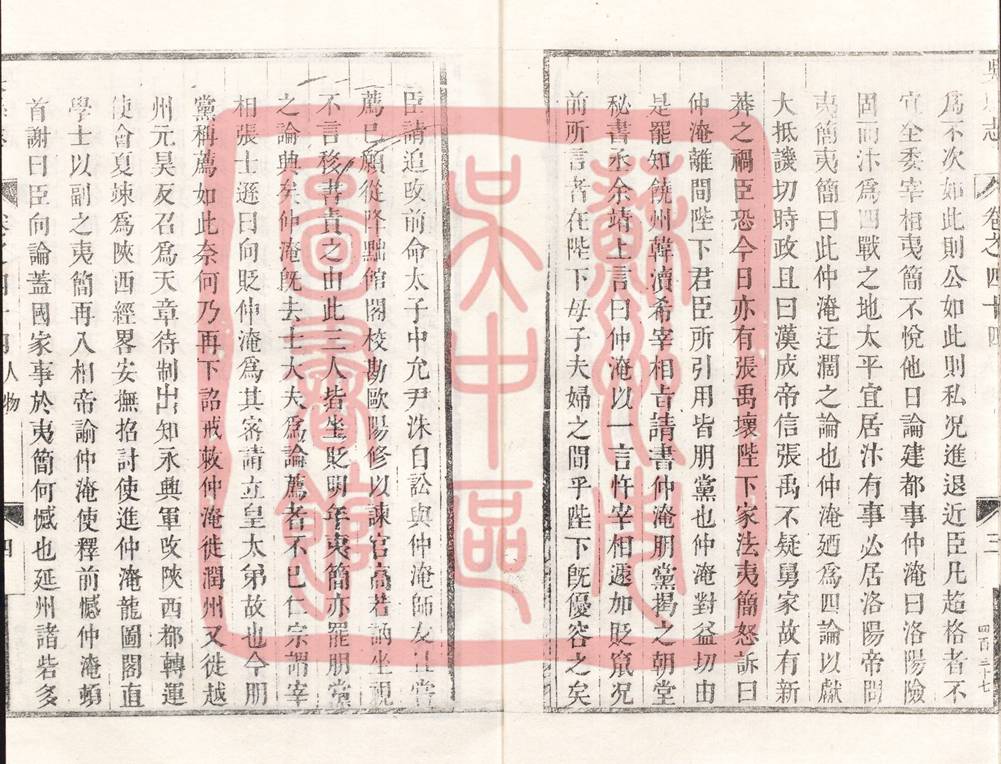 爲不次如此則公如此則私况進退近臣凡超格者不
宜全委宰相夷簡不悅他日論建都事仲淹曰洛陽險
固而汴爲四戰之地太平宜居汴有事必居洛陽帝問
夷簡夷簡曰此仲淹迂濶之論也仲淹廼爲四論以獻
大抵譏切時政且曰漢成帝信張禹不疑舅家故有新
莽之禍臣恐今日亦有張禹壞陛下家法夷簡怒訴曰
仲淹離間陛下君臣所引用皆朋黨也仲淹對益切由
是罷知饒州韓瀆希宰相㫖請書仲淹朋黨揭之朝堂
秘書丞余靖上言曰仲淹以一言忤宰相遽加貶竄况
前所言者在陛下母子夫婦之間乎陛下旣優容之矣
卷之四十四
三
四百三十七
臣請追改前命太子中允尹洙自訟與仲淹師友且嘗
薦已願從降黜館閣校勘歐陽修以諫官高若訥坐視
不言移書責之由此三人皆坐貶明年夷簡亦罷朋黨
之論興矣仲淹旣去士大夫爲論薦者不已仁宗謂宰
相張士遜曰向貶仲淹爲其密請立皇太弟故也今朋
黨稱薦如此奈何乃再下詔戒敕仲淹徙潤州又徙越
州元昊反召爲天章待制出知永興軍改陝西都轉運
使會夏竦爲陝西經畧安撫招討使進仲淹龍圖閣直
學士以副之夷簡再入相帝諭仲淹使釋前憾仲淹頓
首謝曰臣向論蓋國家事於夷簡何憾也延州諸砦多
人物
四
蘇州市
吴中區
圖書館